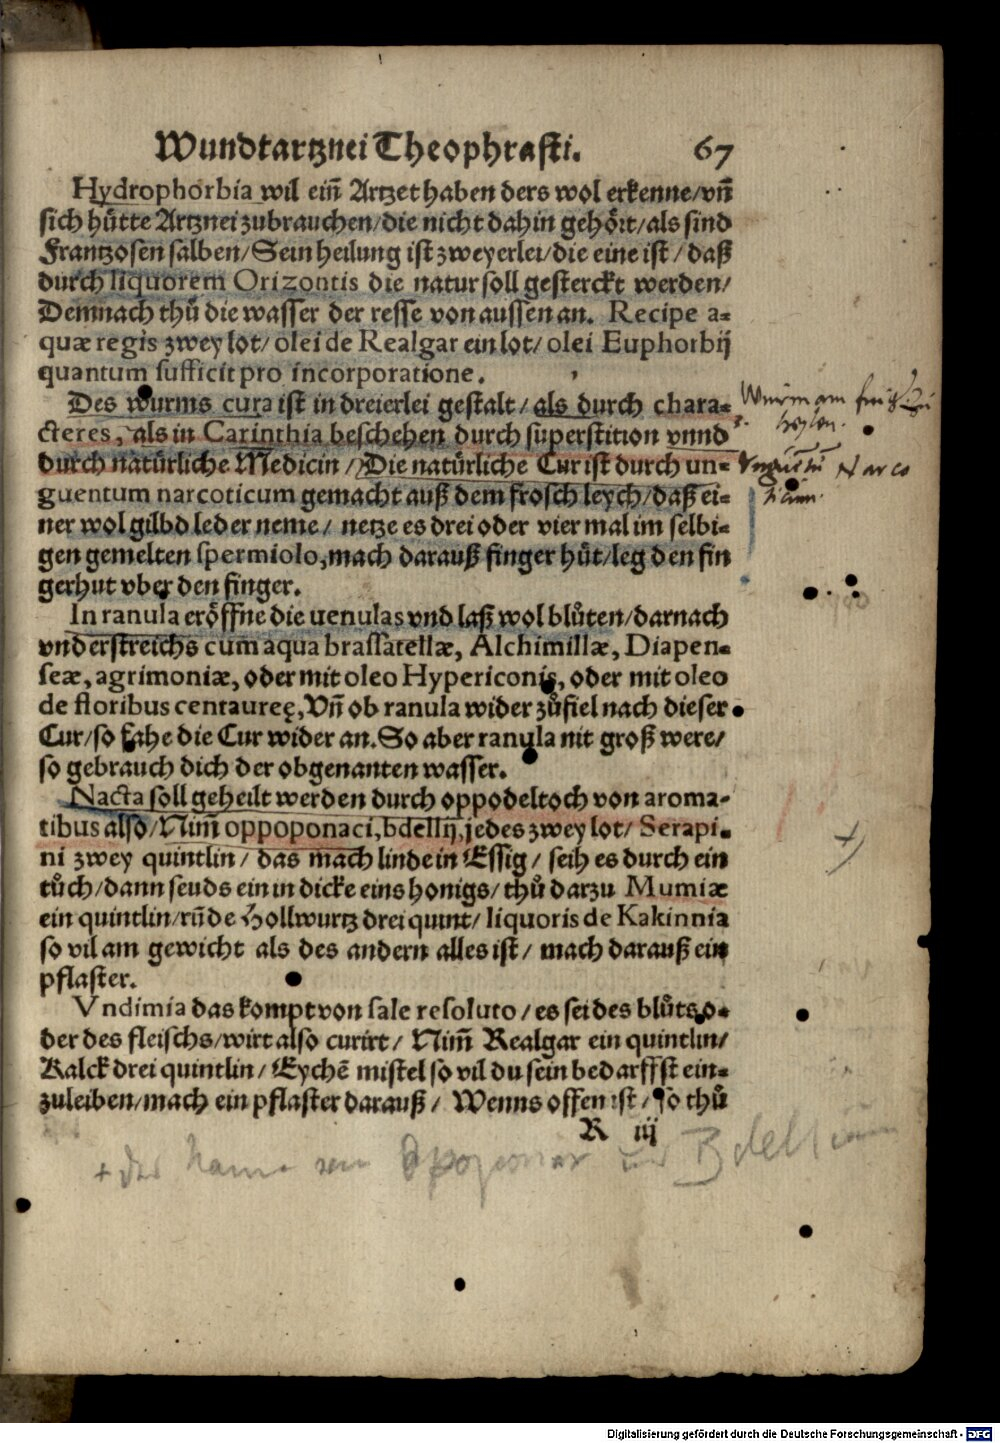 Wundtartznei Theophrasti. 67
Hydrophorbia wil ein̄ Artzet haben ders wol erkenne/vn̄
sich hütte Artznei zubrauchen/die nicht dahin gehört/als sind
Frantzosen salben/Sein heilung ist zweyerlei/die eine ist/ daß
durch liquorem Orizontis die natur soll gesterckt werden/
Demnach thů die wasser der resse von aussen an. Recipe a⸗
quæ regis zwey lot/ olei de Realgar ein lot/ olei Euphorbij
quantum sufficit pro incorporatione.
Des wurms cura ist in dreierlei gestalt/ als durch chara⸗
cteres, als in Carinthia beschehen durch superstition vnnd
durch natürliche Medicin/Die natürliche Cur ist durch un⸗
guentum narcoticum gemacht auß dem frosch leych/daß ei⸗
ner wol gilbd leder neme/ netze es drei oder vier mal im selbi⸗
gen gemelten spermiolo, mach darauß finger hüt/leg den fin
gerhut vber den finger.
In ranula eröffne die uenulas vnd laß wol blůten/darnach
vnd erstreichs cum aqua brassatellæ, Alchimillæ, Diapen⸗
seæ, agrimoniæ, oder mit oleo Hypericonis, oder mit oleo
de floribus centaureę, Vn̄ ob ranula wider zůfiel nach dieser
Cur/so fahe die Cur wider an. So aber ranula nit groß were/
so gebrauch dich der obgenanten wasser.
Nacta soll geheilt werden durch oppodeltoch von aroma-
tibus also/Nim̄ oppoponaci, bdellij, jedes zwey lot/ Serapi⸗
ni zwey quintlin/ das mach linde in Essig/ seih es durch ein
tůch/dann seuds ein in dicke eins honigs/ thů darzu Mumiæ
ein quintlin/rūde Hollwurtz drei quint/ liquoris de Kakinnia
so vil am gewicht als des andern alles ist/ mach darauß ein
pflaster.
Vndimia das kompt von sale resoluto/ es sei des blůts o⸗
der des fleischs/wirt also curirt/ Nim̄ Realgar ein quintlin/
Kalck drei quintlin/ Eychē mistel so vil du sein bedarffst ein⸗
zuleiben/mach ein pflaster darauß/ Wenns offen ist/ so thů
R iij
Wurm am
Narco
+
+ der Name von Opoponax und Bdellium
Digitalisierung gefördert durch die Deutsche Forschungsgemeinschaft - DFG